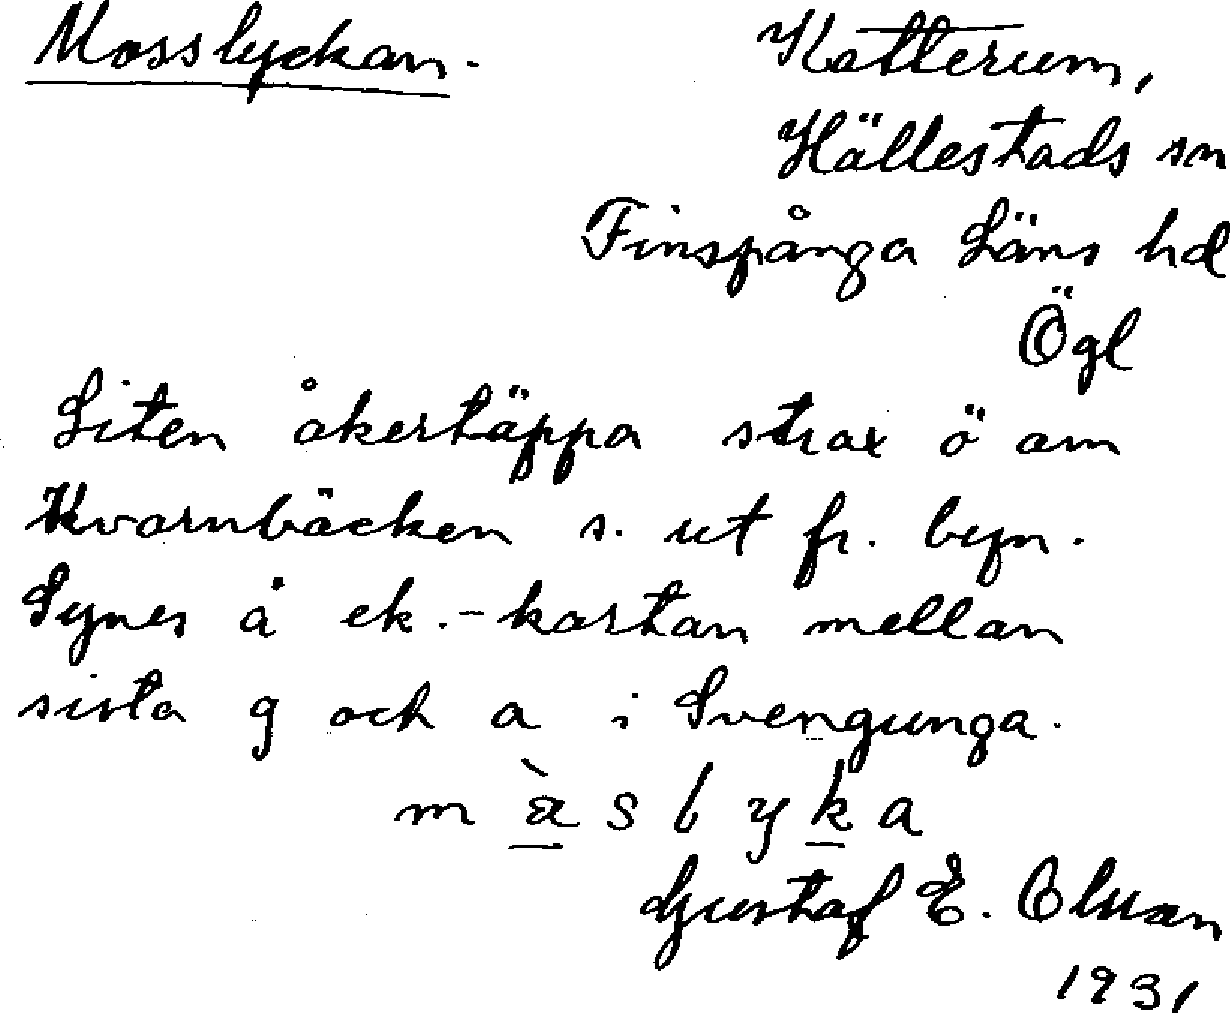 Mosslyckan. Katterum,
Hällestads sn
Finspånga Läns hd
Ögl
Liten åkertäppa strax ö om
Kvarnbäcken s. ut fr. byn.
Synes å ek.-kartan mellan
sista g och a i Svengunga.
m̀ɑslyka
Gustaf E. Olsson
1931